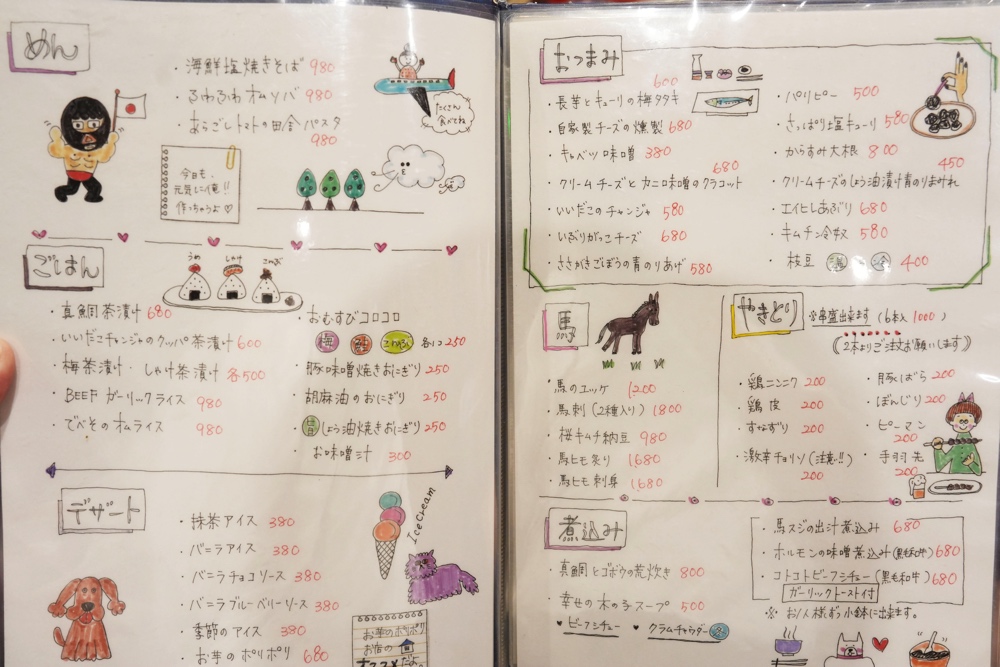 めん
・海鮮塩焼きそば 980
・ふわふわオムソバ 980
・あらごしトマトの田舎パスタ
980
たくさん
食べてね
今日も、
元気に俺!!
作っちゃうよ♡
ごはん
うめ
しゃけ
こんぶ
・真鯛茶漬け 680
・いいだこチャンジャのクッパ茶漬け 600
・梅茶漬け・しゃけ茶漬け 各500
・BEEFガーリックライス 980
・でべそのオムライス 980
・おむすびコロコロ
梅 鮭 こんぶ 各1コ 250
・豚味噌焼きおにぎり 250
・胡麻油のおにぎり 250
・昔しょう油焼きおにぎり 250
・お味噌汁 300
デザート
・抹茶アイス 380
・バニラアイス 380
・バニラチョコソース 380
・バニラブルーベリーソース 380
・季節のアイス 380
・お芋のポリポリ 680
Ice Cream
お芋のポリポリ
お店の
オススメだよ
おつまみ
600
・長芋とキューリの梅タタキ
・自家製チーズの燻製 680
・キャベツ味噌 380
680
・クリームチーズとカニ味噌のクラコット
・いいだこのチャンジャ 580
・いぶりがっこチーズ 680
・ささがきごぼうの青のりあげ 580
・パリピー 500
・さっぱり塩キューリ 580
・からすみ大根 800
450
・クリームチーズのしょう油漬け青のりまみれ
・エイヒレあぶり 680
・キムチ冷奴 580
・枝豆 温 or 冷 400
馬
・馬のユッケ 1200
・馬刺(2種入り) 1800
・桜キムチ納豆 980
・馬ヒモ炙り 1,680
・馬ヒモ刺身 1,680
やきとり
※串盛出来ます(6本入 1000)
((2本よりご注文お願いします))
・鶏ニンニク 200
・鶏皮 200
・すなずり 200
・激辛チョリソ(注意!!)
200
・豚ばら 200
・ぼんじり 200
・ピーマン
200
・手羽先
200
煮込み
・真鯛とゴボウの荒炊き 800
・幸せの木の子スープ 500
♥ビーフシチュー ♥クラムチャウダー冬
・馬スジの出汁煮込み 680
・ホルモンの味噌煮込み(黒毛和牛) 680
・コトコトビーフシチュー(黒毛和牛) 680
ガーリックトースト付
※お1人様ずつ小鉢に出来ます。